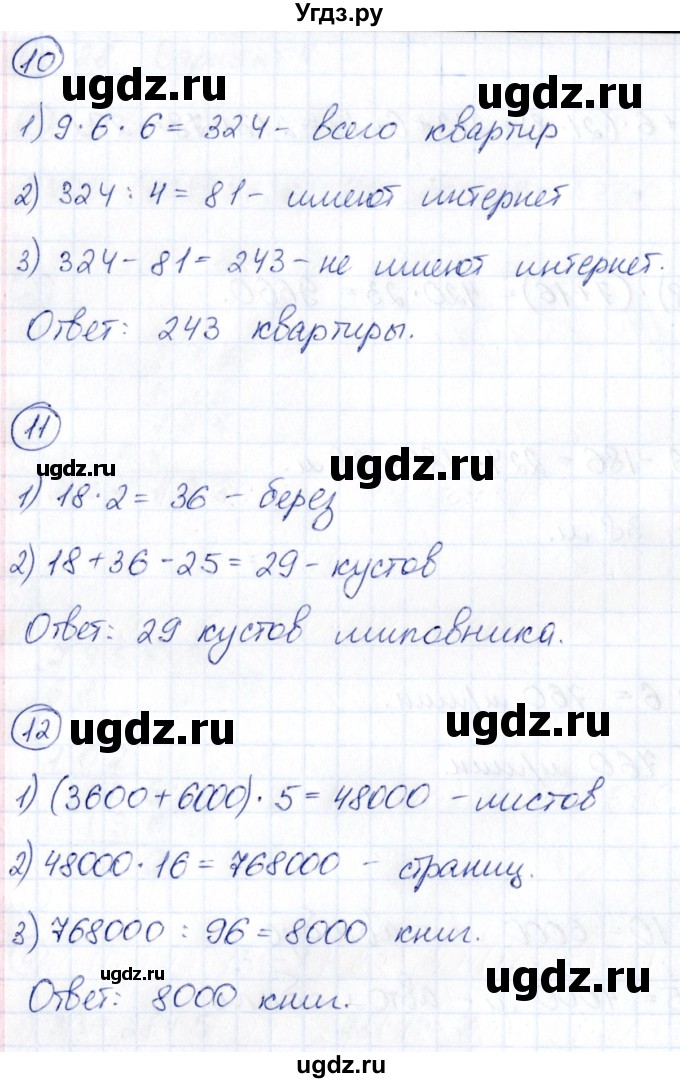 Угдз.ру
10
ugdz.ru ugdz.ru
1) 9·6·6 = 324 - всего квартир
2) 324 : 4 = 81 - имеют интернет
3) 324 - 81 = 243 - не имеют интернет.
Ответ: 243 квартиры.
11
ugdz.ru ugdz.ru
1) 18·2 = 36 - берез
2) 18 + 36 - 25 = 29 - кустов
Ответ: 29 кустов шиповника.
12
ugdz.ru ugdz.ru
1) (3600 + 6000)·5 = 48000 - листов
2) 48000·16 = 768000 - страниц.
3) 768000 : 96 = 8000 книг.
ugdz.ru ugdz.ru
Ответ: 8000 книг.
ugdz.ru